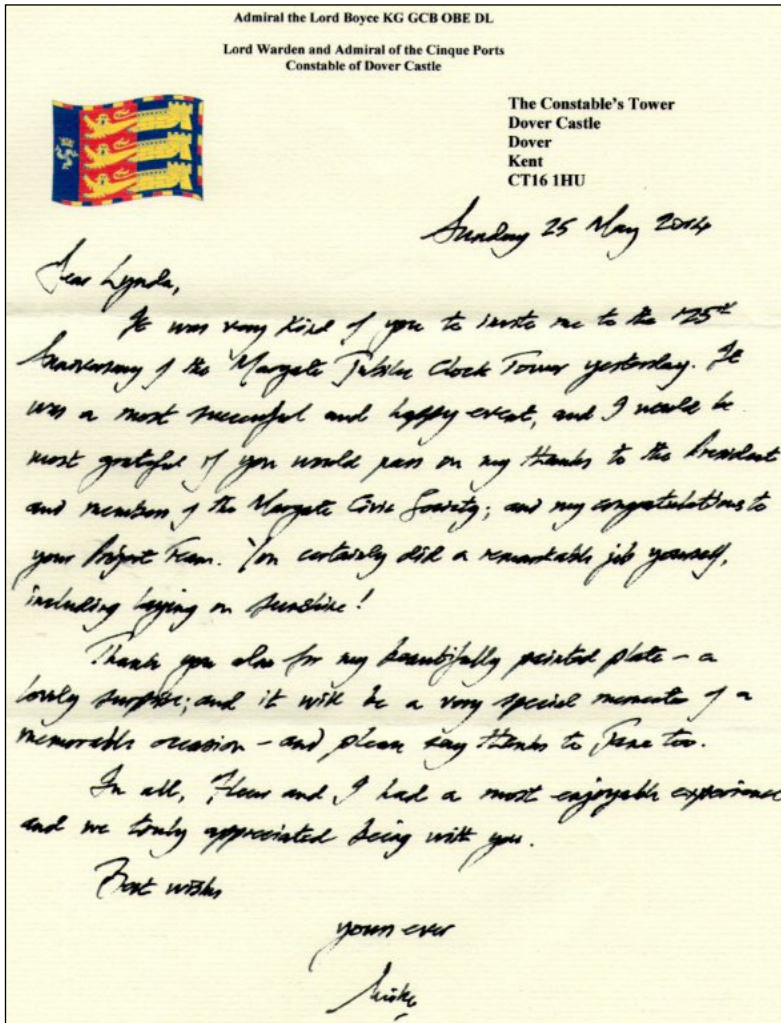 Admiral the Lord Boyce KG GCB OBE DL
Lord Warden and Admiral of the Cinque Ports
Constable of Dover Castle
The Constable's Tower
Dover Castle
Dover
Kent
CT16 1HU
Sunday 25 May 2014
Dear Lynda,
It was very kind of you to invite me to the 125th
Anniversary of the Margate Jubilee Clock Tower yesterday. It
was a most successful and happy event, and I would be
most grateful if you would pass on my thanks to the President
and members of the Margate Civic Society; and my congratulations to
your Project Team. You certainly did a remarkable job yourself,
including laying on sunshine!
Thank you also for my beautifully painted plate – a
lovely surprise; and it will be a very special memento of a
memorable occasion – and please say thanks to Jane too.
In all, Fleur and I had a most enjoyable experience
and we truly appreciated being with you.
Best wishes
yours ever
Mike